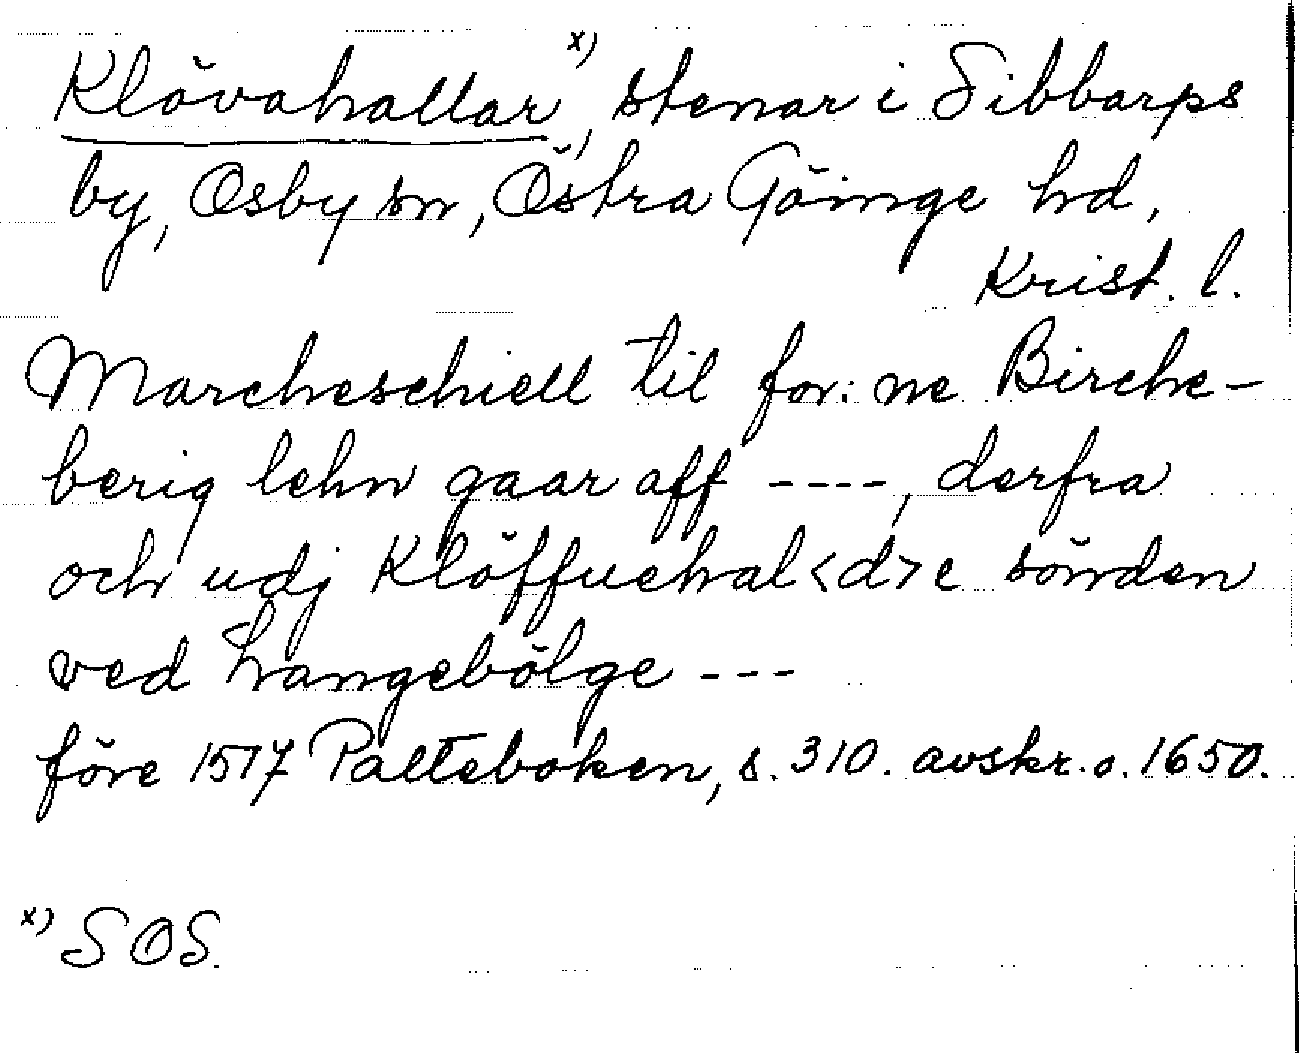 Klövahallar x), stenar i Sibbarps
by, Osby sn, Östra Göinge hd,
Krist. l.
Marcheschiell til for: ne Birche-
berig lehn gaar aff ----, derfra
och udj Klöffuehal<d>e sönden
ved Hangebölge ---
före 1517 Palteboken, s. 310. avskr. o. 1650.
x) SOS.